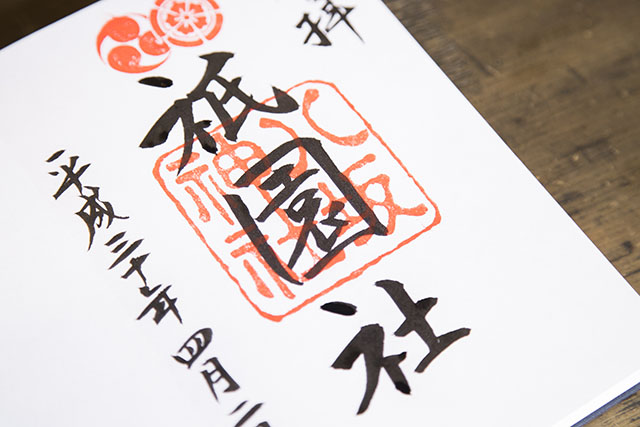 拝
祇園社
八坂
神社
平成三十年四月二